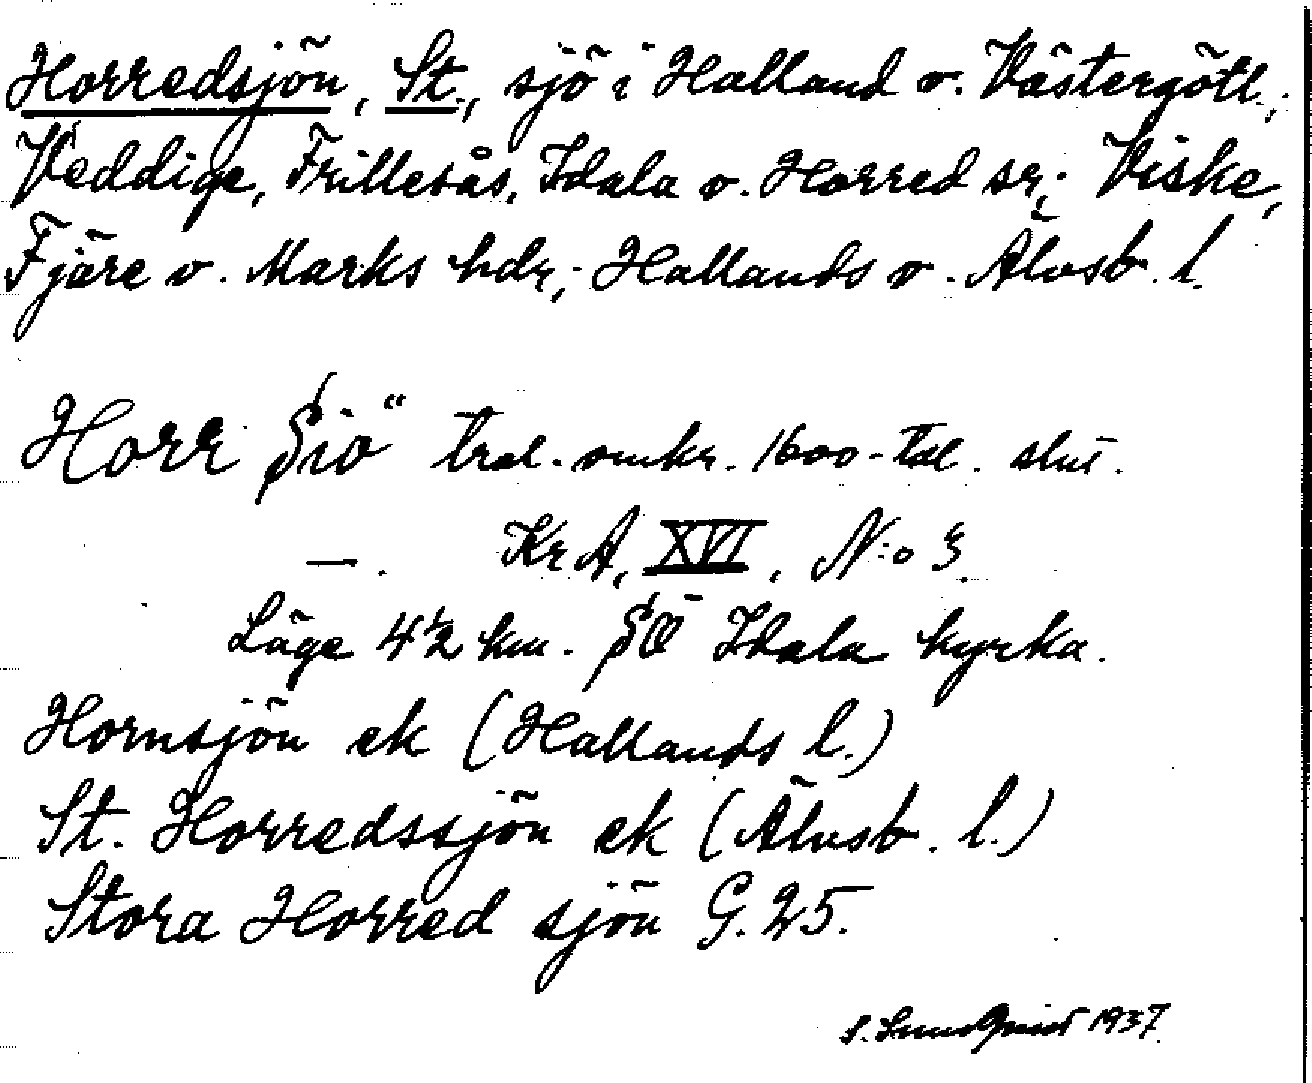 Horredsjön, St., sjö i Halland o. Västergötl.;
Veddige, Frillesås, Idala o. Horred sr; Viske,
Fjäre o. Marks hdr; Hallands o. Älvsb. l.
Horr Siö" tral. omkr. 1600-tal. slut.
—. Kr A, XVI, N:o 3.
Läge 4½ km. SO Idala kyrka.
Hornsjön ek (Hallands l.)
St. Horredssjön ek (Älvsb. l.)
Stora Horred sjön G. 25.
S. Lundquist 1937.